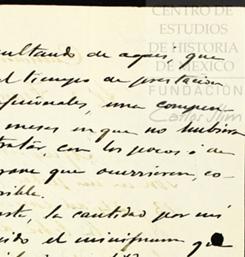 CENTRO DE
ESTUDIOS
DE HISTORIA
DE MEXICO
FUNDACIÓN
Carlos Slim
sultando de aqui; que
el tiempo de prestacion
una compen
meses in que no hubiera
tratar, con los pocos ó de
grave que ocurrieren, co-
sible.
la cantidad por mi
ido el minimum que